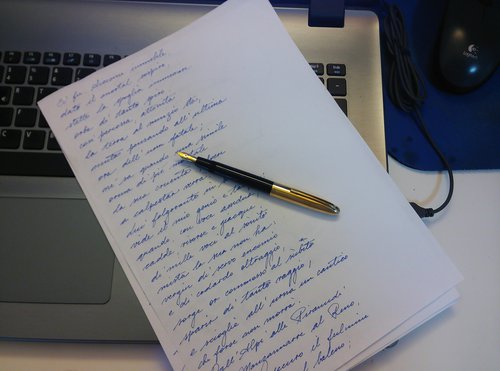 Ei fu siccome immobile
dato il mortal sospiro,
stette la spoglia immemore
orba di tanto spiro
così percossa, attonita
la terra al nunzio sta,
muta pensando all'ultima
ora dell'uom fatale;
nè sa quando una simile
orma di piè mortale
la sua cruenta
a calpestar verrà
Lui folgorante in
vide il mio genio e
quando, con vece assidua
cadde, risorse e giacque
di mille voci al sonito
mista la sua non ha;
vergin di servo encomio
e di codardo oltraggio, à
sorge or commosso al subito
sparir di tanto raggio;
e scioglie all'urna un cantico
che forse non morrà.
Dall'Alpi alle Piramidi
Manzanarre al Reno,
securo il fulmine
al baleno;
Logitech